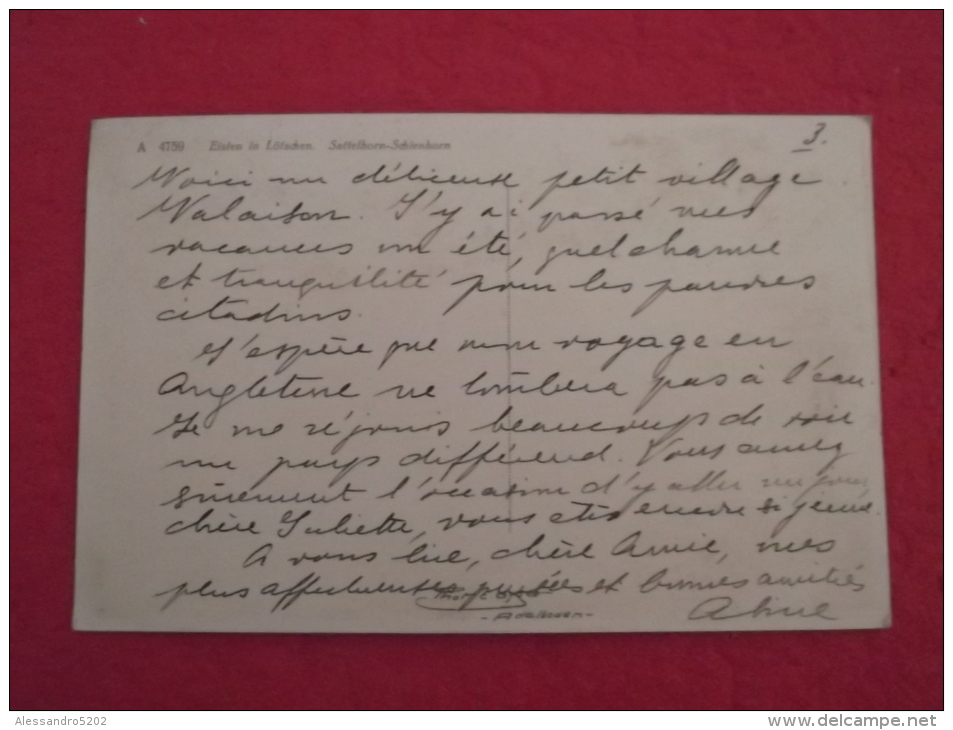 3.
A 4759 Eisten in Lötschen. Sattelhorn-Schienhorn
Voici un délicieux petit village
Valaison. J'y ai passé mes
vacances un été, quel charme
et tranquilité pour les pauvres
citadins.
J'espère que mon voyage en
Angleterre ne tombera pas à l'eau.
Je me réjouis beaucoup de voir
un pays différend. Vous aurez
sûrement l'occasion d'y aller un jour
chère Juliette, vous êtes encore si jeune.
A vous lire, chère Amie, mes
plus affectueuses pensées et bonnes amitiés
Aline
Alessandro5202
www.delcampe.net